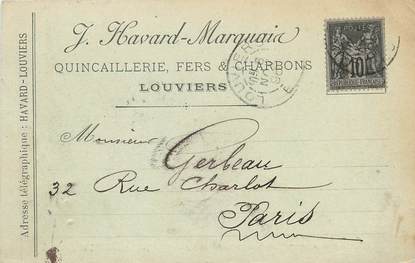 J. Havard-Marquaix
QUINCAILLERIE, FERS & CHARBONS
LOUVIERS
Adresse télégraphique : HAVARD-LOUVIERS
LOUVIERS
10
RÉPUBLIQUE FRANÇAISE
Monsieur
Gerbeau
32 Rue Charlot
Paris